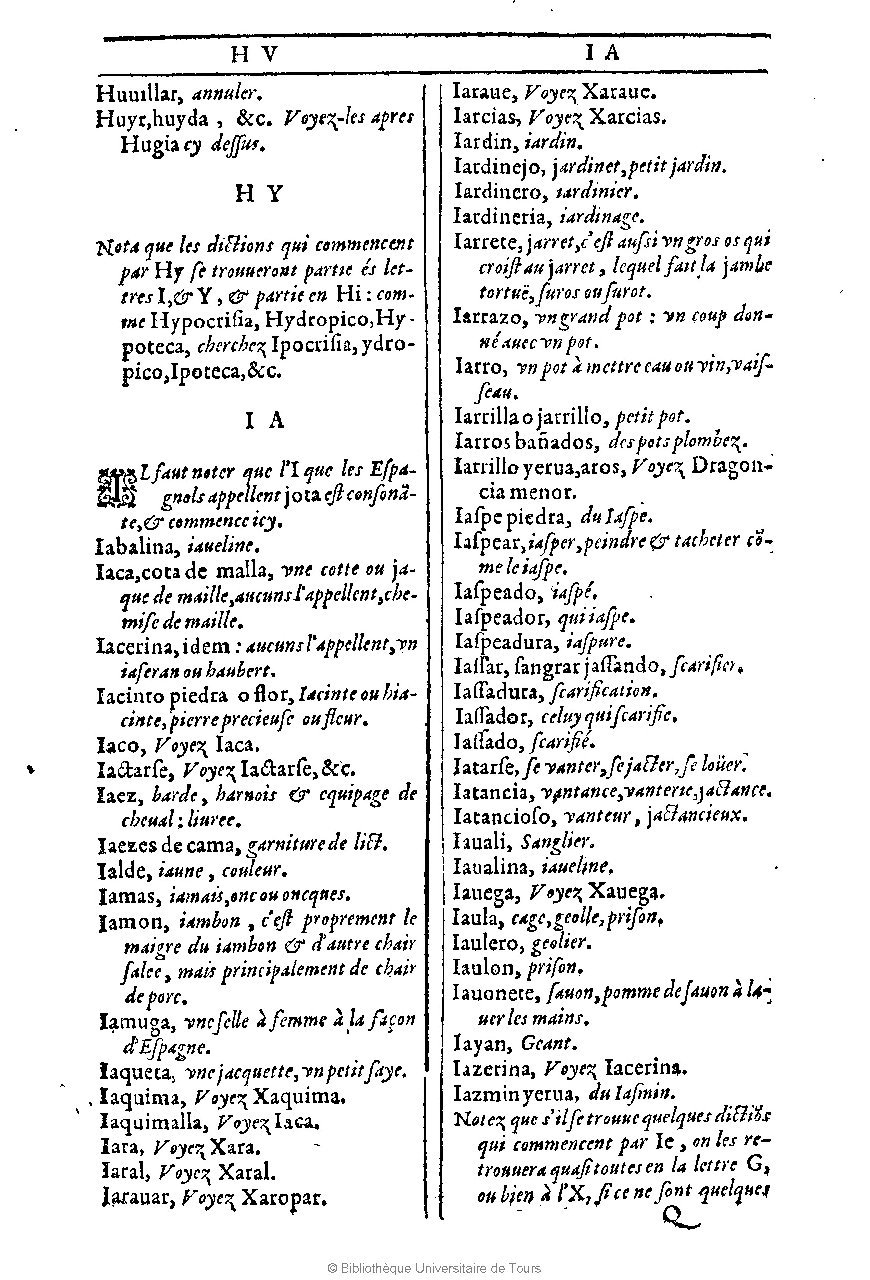 H V
Huuillar, annuler.
Huyr,huyda, &c. Voyez-les apres
Hugia cy deſſus.
H Y
Nota que les dictions qui commencent
par Hy ſe trouueront partie és let-
tres I,& Y, & partie en Hi: com-
me Hypocriſia, Hydropico,Hy-
poteca, cherchez Ipocriſia, ydro-
pico,Ipoteca,&c.
I A
IL faut noter que l'I que les Eſpa-
gnols appellent jota eſt conſonã-
te,& commence icy.
Iabalina, iaueline.
Iaca,cota de malla, vne cotte ou ja-
que de maille,aucuns l'appellent,che-
miſe de maille.
Iacerina,idem: aucuns l'appellent,vn
iaſeran ou haubert.
Iacinto piedra o flor, Iacinte ou hia-
cinte,pierre precieuſe ou fleur.
Iaco, Voyez Iaca.
Iactarſe, Voyez Iactarſe,&c.
Iaez, barde, harnois & equipage de
cheual: liuree.
Iaezes de cama, garniture de lict.
Ialde, iaune, couleur.
Iamas, iamais,onc ou oncques.
Iamon, iambon, c'eſt proprement le
maigre du iambon & d'autre chair
ſalee, mais principalement de chair
de porc.
Iamuga, vne ſelle à femme à la façon
d'Eſpagne.
Iaqueta, vne jacquette,vn petit ſaye.
Iaquima, Voyez Xaquima.
Iaquimalla, Voyez Iaca.
Iara, Voyez Xara.
Iaral, Voyez Xaral.
Iarauar, Voyez Xaropar.
I A
Iaraue, Voyez Xaraue.
Iarcias, Voyez Xarcias.
Iardin, iardin.
Iardinejo, jardinet,petit jardin.
Iardinero, iardinier.
Iardineria, iardinage.
Iarrete, jarret,c'eſt auſſi vn gros os qui
croiſt au jarret, lequel fait la jambe
tortuë,ſuros ou ſurot.
Iarrazo, vn grand pot: vn coup don-
né auec vn pot.
Iarro, vn pot à mettre eau ou vin,vaiſ-
ſeau.
Iarrilla o jarrillo, petit pot.
Iarros bañados, des pots plombez.
Iarrillo yerua,aros, Voyez Dragon-
cia menor.
Iaſpe piedra, du Iaſpe.
Iaſpear,iaſper,peindre & tacheter cõ-
me le iaſpe.
Iaſpeado, iaſpé.
Iaſpeador, qui iaſpe.
Iaſpeadura, iaſpure.
Iaſſar, ſangrar jaſſando, ſcarifier.
Iaſſadura, ſcarification.
Iaſſador, celuy qui ſcarifie.
Iaſſado, ſcarifié.
Iatarſe, ſe vanter,ſe jacter,ſe loüer.
Iatancia, vantance,vanterie,jactance.
Iatancioſo, vanteur, jactancieux.
Iauali, Sanglier.
Iaualina, iaueline.
Iauega, Voyez Xauega.
Iaula, cage,geolle,priſon.
Iaulero, geolier.
Iaulon, priſon.
Iauonete, ſauon,pomme de ſauon à la-
uer les mains.
Iayan, Geant.
Iazerina, Voyez Iacerina.
Iazmin yerua, du Iaſmin.
Notez que s'il ſe trouue quelques dictiõs
qui commencent par Ie, on les re-
trouuera quaſi toutes en la lettre G,
ou bien à l'X, ſi ce ne ſont quelques
Q
© Bibliothèque Universitaire de Tours